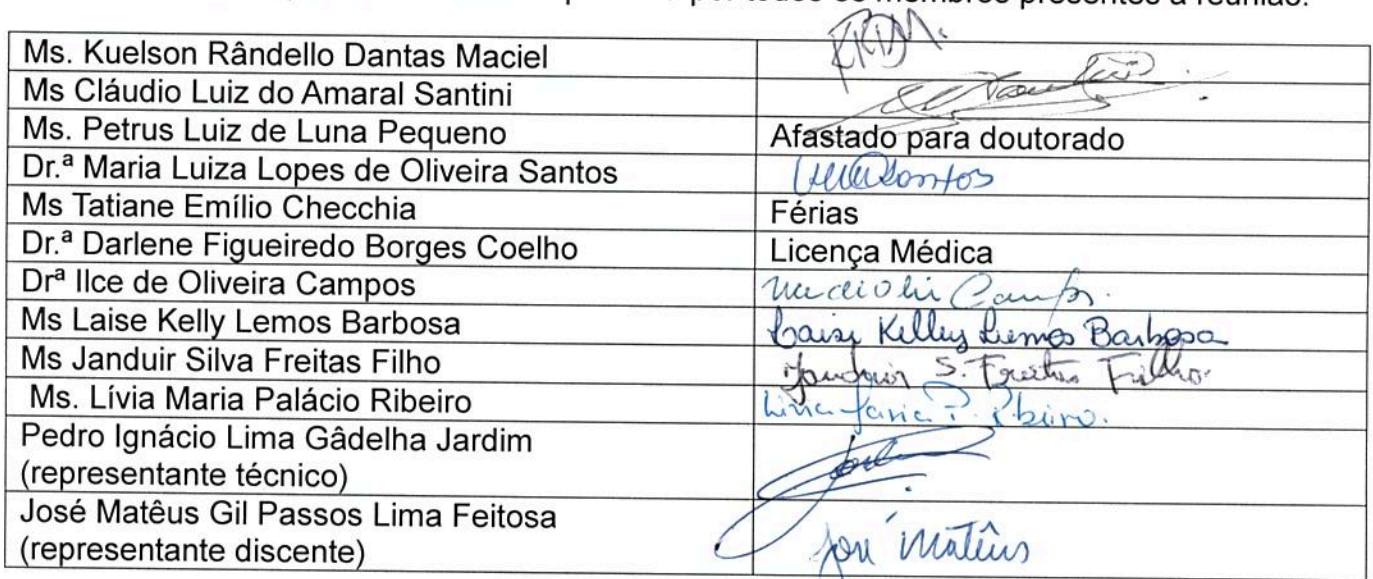 todos os membros presentes à reunião.
Ms. Kuelson Rândello Dantas Maciel KRDM.
Ms Cláudio Luiz do Amaral Santini
Ms. Petrus Luiz de Luna Pequeno Afastado para doutorado
Dr.ª Maria Luiza Lopes de Oliveira Santos
Ms Tatiane Emílio Checchia Férias
Dr.ª Darlene Figueiredo Borges Coelho Licença Médica
Drª Ilce de Oliveira Campos Campos.
Ms Laise Kelly Lemos Barbosa Laise Kelly Lemos Barbosa
Ms Janduir Silva Freitas Filho Janduir S. Freitas Filho
Ms. Lívia Maria Palácio Ribeiro Lívia Maria P. Ribeiro.
Pedro Ignácio Lima Gâdelha Jardim
(representante técnico)
José Matêus Gil Passos Lima Feitosa
(representante discente) José Matêus